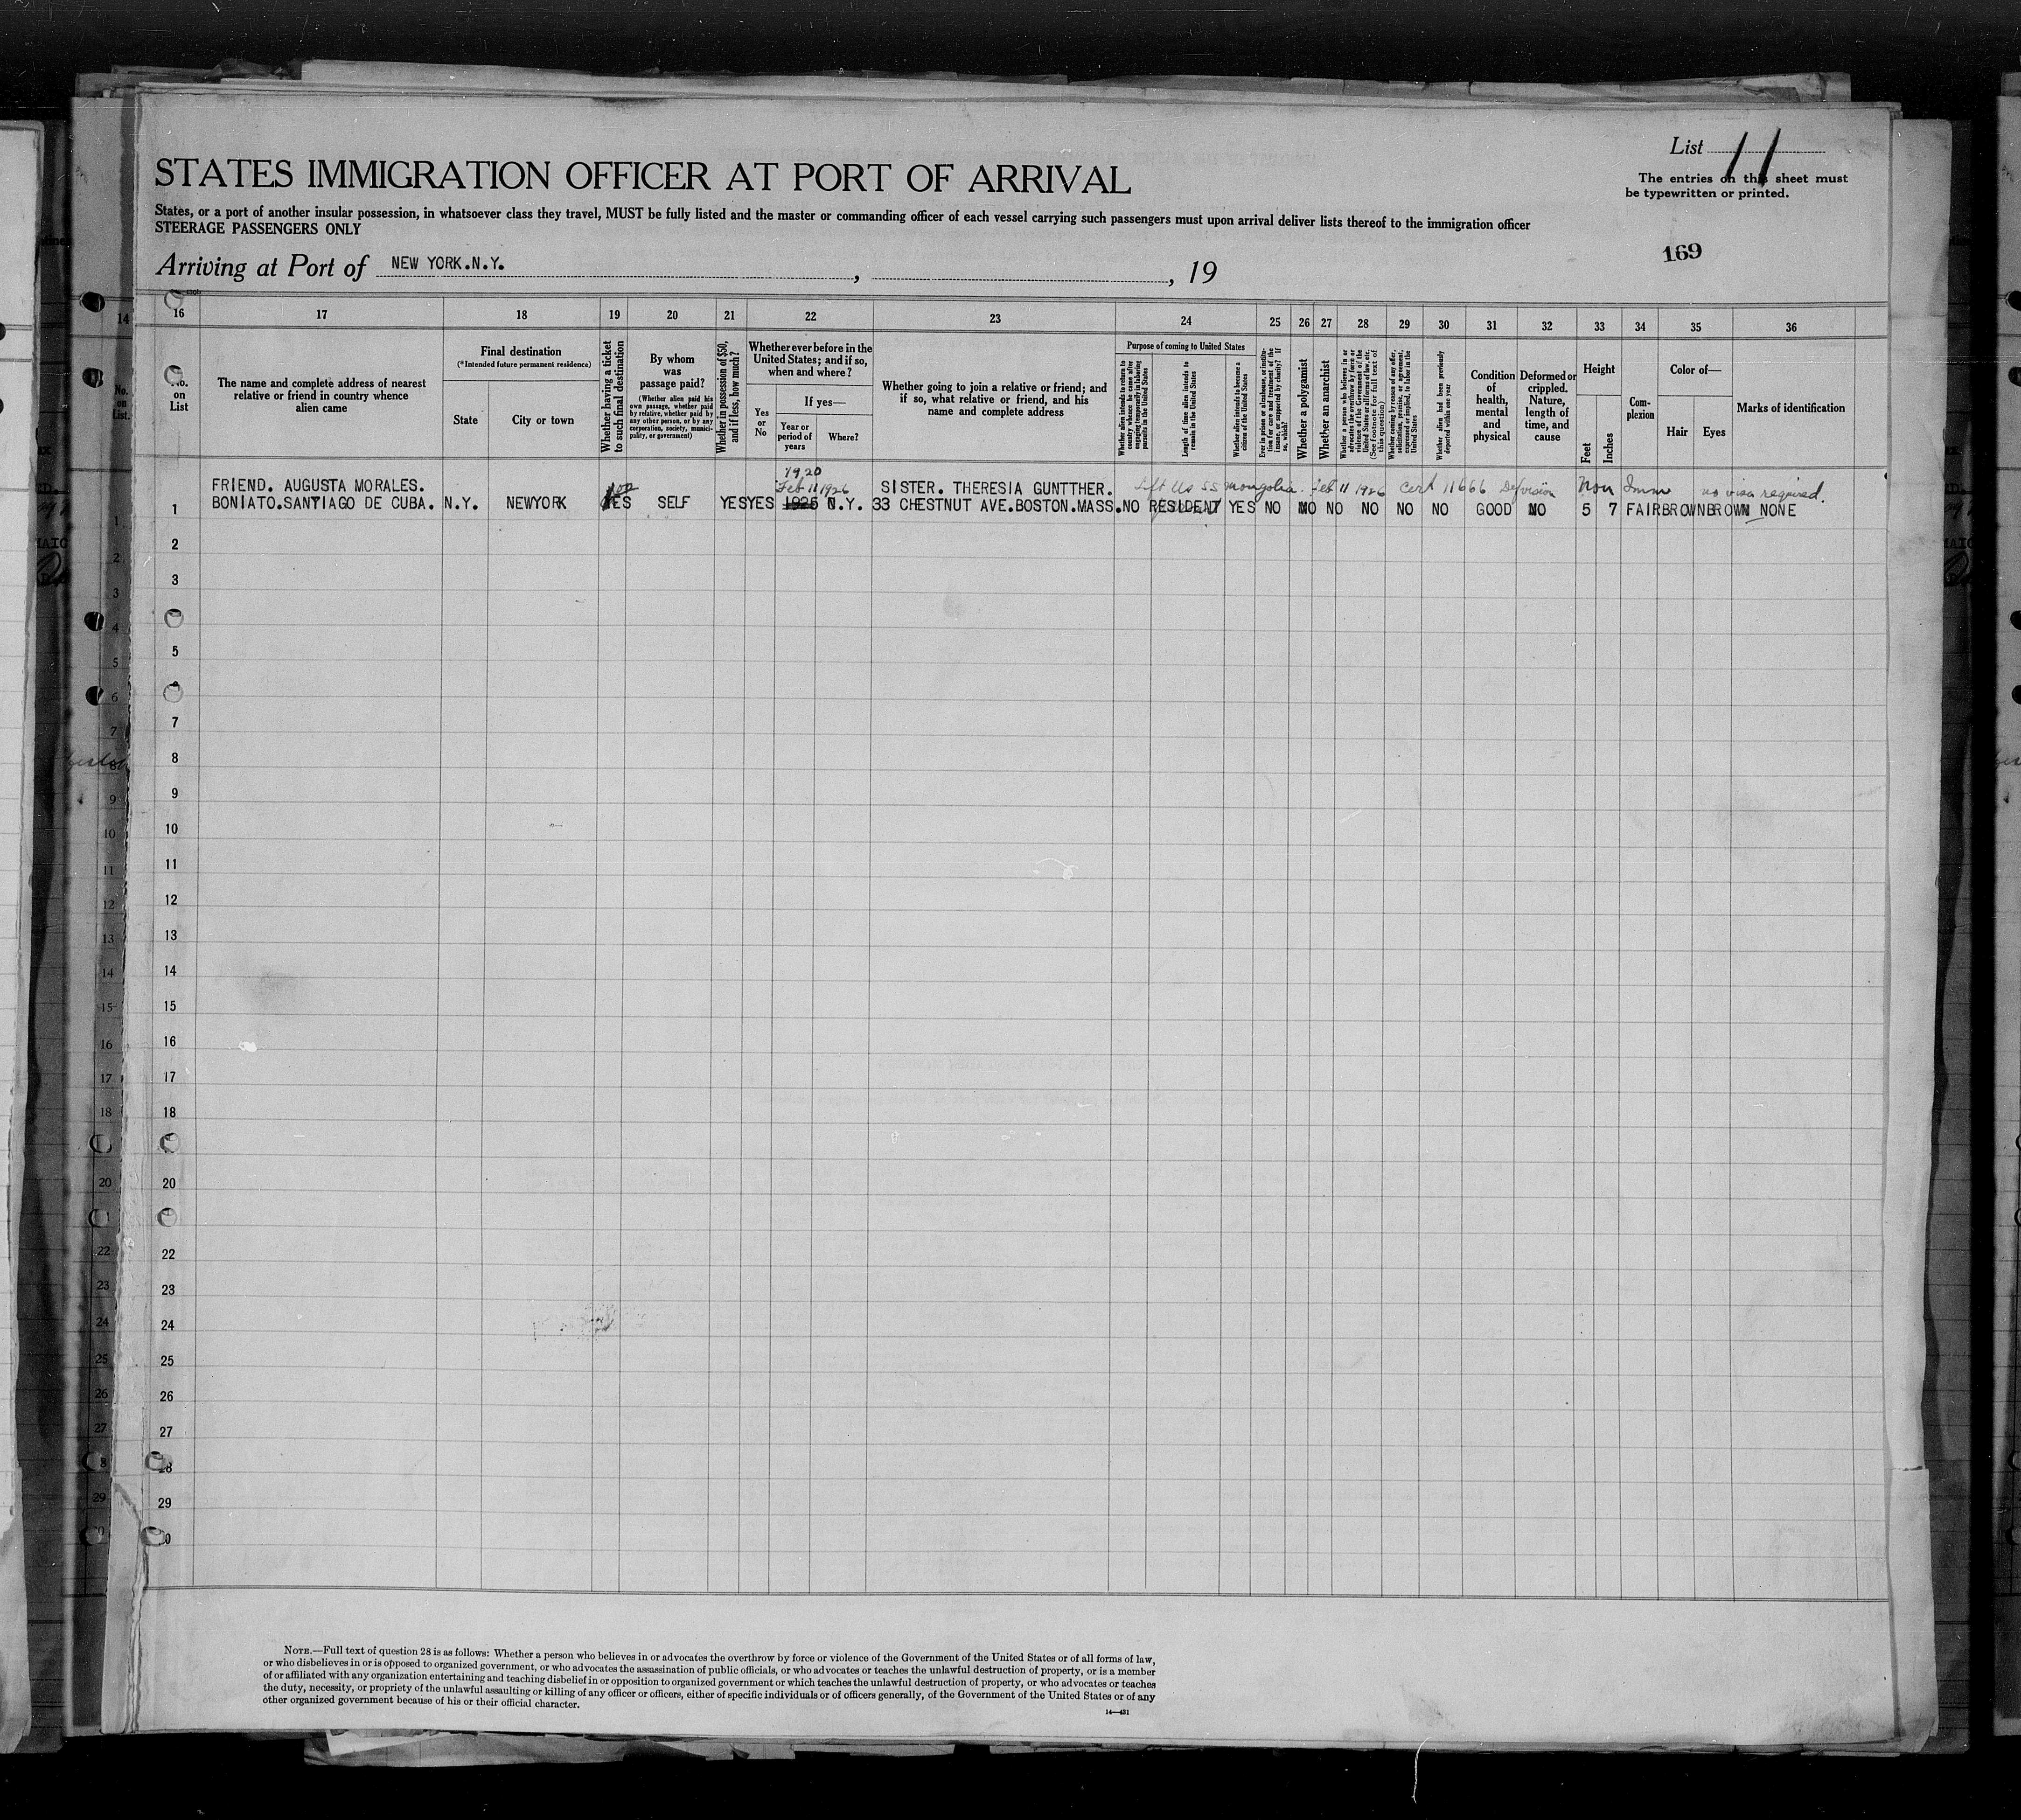 List 11
The entries on this sheet must
be typewritten or printed.
STATES IMMIGRATION OFFICER AT PORT OF ARRIVAL
States, or a port of another insular possession, in whatsoever class they travel, MUST be fully listed and the master or commanding officer of each vessel carrying such passengers must upon arrival deliver lists thereof to the immigration officer
STEERAGE PASSENGERS ONLY
169
Arriving at Port of NEW YORK.N.Y. , , 19
14
16 17 18 19 20 21 22 23 24 25 26 27 28 29 30 31 32 33 34 35 36
No. on List.
No. on List
The name and complete address of nearest relative or friend in country whence alien came
Final destination
(*Intended future permanent residence)
State
City or town
Whether having a ticket to such final destination
By whom was passage paid?
(Whether alien paid his own passage, whether paid by relative, whether paid by any other person, or by any corporation, society, municipality, or government)
Whether in possession of $50, and if less, how much?
Whether ever before in the United States; and if so, when and where?
Yes or No
If yes—
Year or period of years
Where?
Whether going to join a relative or friend; and if so, what relative or friend, and his name and complete address
Purpose of coming to United States
Whether alien intends to return to country whence he came after engaging temporarily in laboring pursuits in the United States
Length of time alien intends to remain in the United States
Whether alien intends to become a citizen of the United States
Ever in prison or almshouse, or institution for care and treatment of the insane, or supported by charity? If so, which?
Whether a polygamist
Whether an anarchist
Whether a person who believes in or advocates the overthrow by force or violence of the Government of the United States or all forms of law, etc. (See footnote for full text of this question)
Whether coming by reason of any offer, solicitation, promise, or agreement, expressed or implied, to labor in the United States
Whether alien had been previously deported within one year
Condition of health, mental and physical
Deformed or crippled. Nature, length of time, and cause
Height
Feet
Inches
Complexion
Color of—
Hair
Eyes
Marks of identification
1920
FRIEND. AUGUSTA MORALES. Feb 11 1926 SISTER. THERESIA GUNTTHER. Left US SS Mongolia Feb 11 1926 Cert 11666 Non Imm no visa required.
1 BONIATO.SANTIAGO DE CUBA. N.Y. NEWYORK YES SELF YES YES 1925 N.Y. 33 CHESTNUT AVE.BOSTON.MASS. NO RESIDENT YES NO NO NO NO NO NO GOOD NO 5 7 FAIR BROWN BROWN NONE
2
3
4
5
6
7
8
9
10
11
12
13
14
15
16
17
18
20
22
23
24
25
26
27
28
29
NOTE.—Full text of question 28 is as follows: Whether a person who believes in or advocates the overthrow by force or violence of the Government of the United States or of all forms of law,
or who disbelieves in or is opposed to organized government, or who advocates the assassination of public officials, or who advocates or teaches the unlawful destruction of property, or is a member
of or affiliated with any organization entertaining and teaching disbelief in or opposition to organized government or which teaches the unlawful destruction of property, or who advocates or teaches
the duty, necessity, or propriety of the unlawful assaulting or killing of any officer or officers, either of specific individuals or of officers generally, of the Government of the United States or of any
other organized government because of his or their official character.
14—431